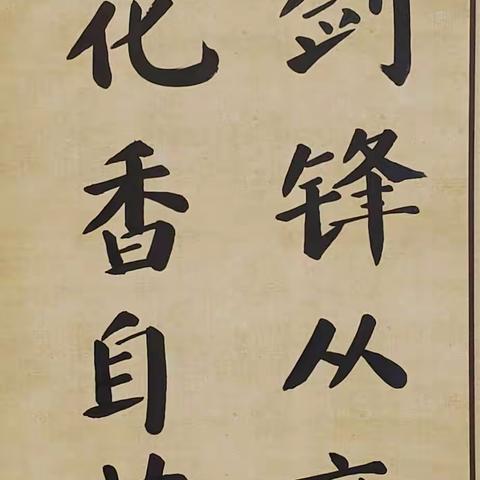 剑锋从
花香自